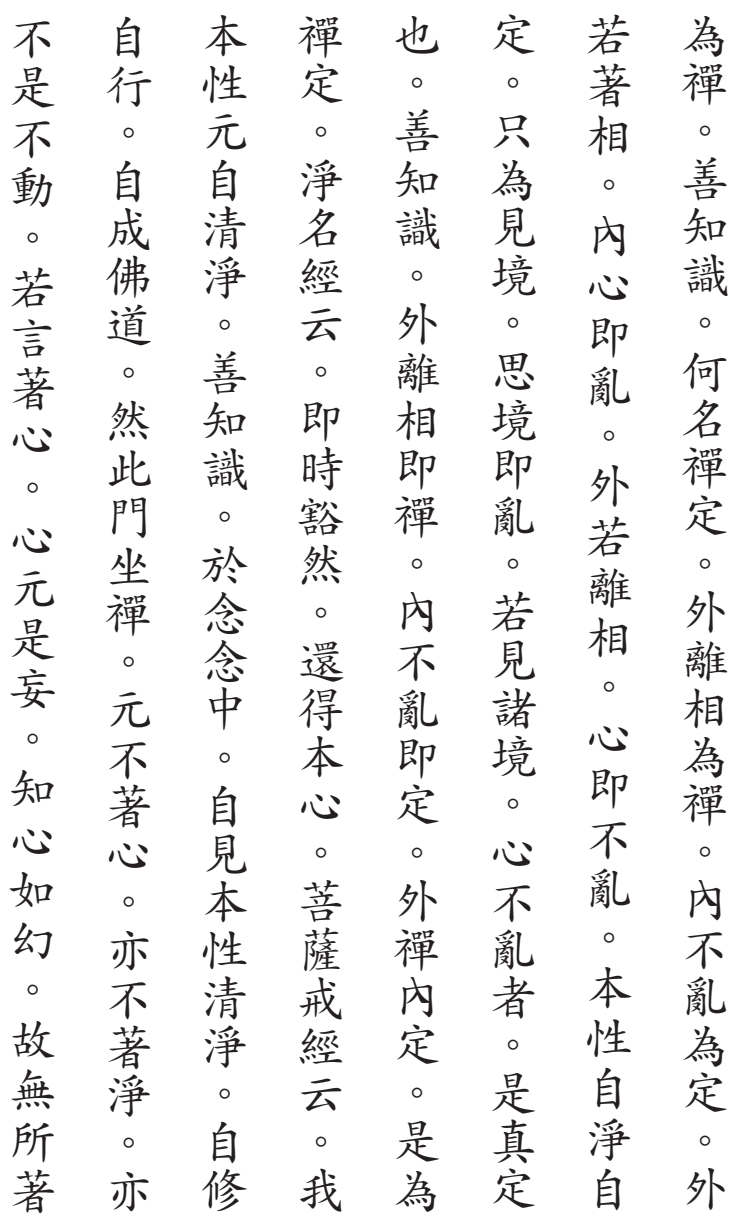 為禪。善知識。何名禪定。外離相為禪。內不亂為定。外
若著相。內心即亂。外若離相。心即不亂。本性自淨自
定。只為見境。思境即亂。若見諸境。心不亂者。是真定
也。善知識。外離相即禪。內不亂即定。外禪內定。是為
禪定。淨名經云。即時豁然。還得本心。菩薩戒經云。我
本性元自清淨。善知識。於念念中。自見本性清淨。自修
自行。自成佛道。然此門坐禪。元不著心。亦不著淨。亦
不是不動。若言著心。心元是妄。知心如幻。故無所著